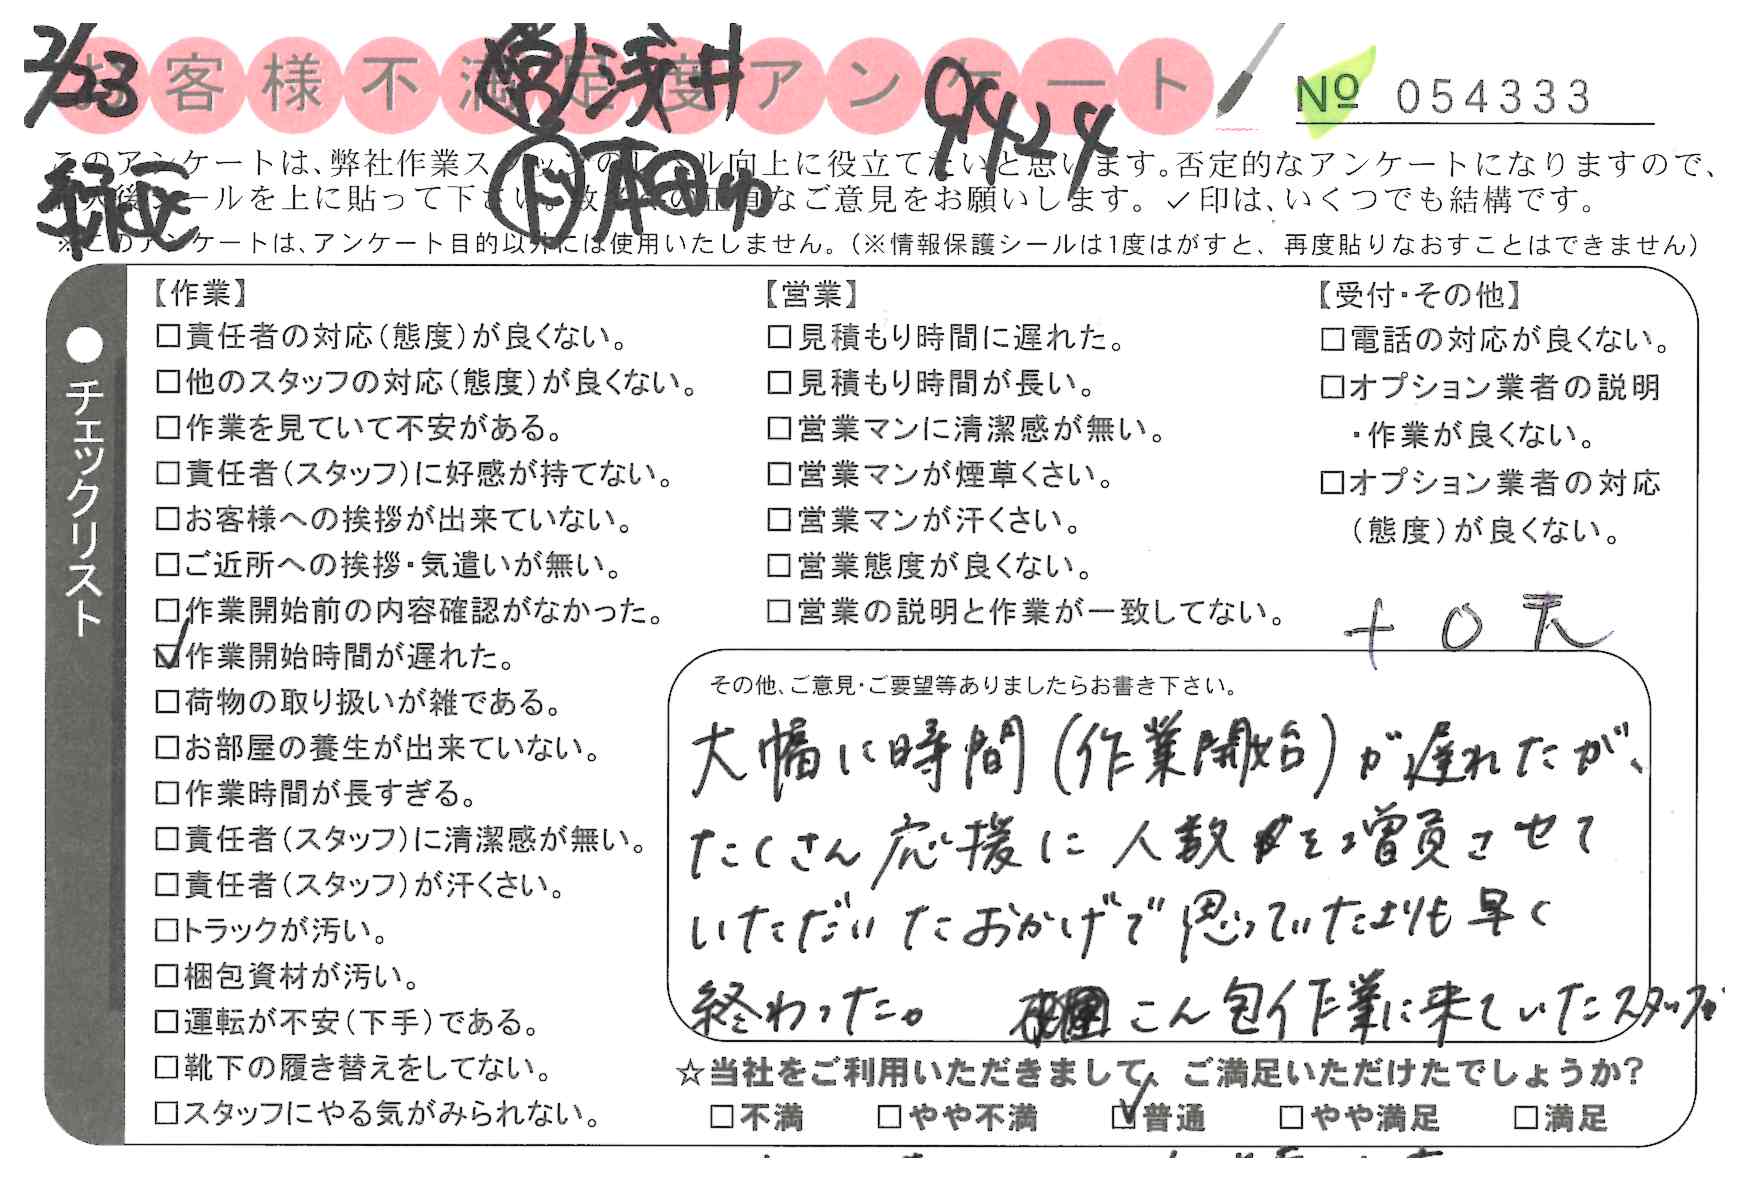 2/23
お客様不満足度アンケート
営 浅井
9424
№ 054333
このアンケートは、弊社作業スタッフのレベル向上に役立てたいと思います。否定的なアンケートになりますので、
緑区
ド 本田ゆ
記入後シールを上に貼って下さい。数々の正直なご意見をお願いします。✓印は、いくつでも結構です。
※このアンケートは、アンケート目的以外には使用いたしません。(※情報保護シールは1度はがすと、再度貼りなおすことはできません)
●チェックリスト
【作業】
□責任者の対応(態度)が良くない。
□他のスタッフの対応(態度)が良くない。
□作業を見ていて不安がある。
□責任者(スタッフ)に好感が持てない。
□お客様への挨拶が出来ていない。
□ご近所への挨拶・気遣いが無い。
□作業開始前の内容確認がなかった。
☑作業開始時間が遅れた。
□荷物の取り扱いが雑である。
□お部屋の養生が出来ていない。
□作業時間が長すぎる。
□責任者(スタッフ)に清潔感が無い。
□責任者(スタッフ)が汗くさい。
□トラックが汚い。
□梱包資材が汚い。
□運転が不安(下手)である。
□靴下の履き替えをしてない。
□スタッフにやる気がみられない。
【営業】
□見積もり時間に遅れた。
□見積もり時間が長い。
□営業マンに清潔感が無い。
□営業マンが煙草くさい。
□営業マンが汗くさい。
□営業態度が良くない。
□営業の説明と作業が一致してない。
【受付・その他】
□電話の対応が良くない。
□オプション業者の説明
・作業が良くない。
□オプション業者の対応
(態度)が良くない。
その他、ご意見・ご要望等ありましたらお書き下さい。
大幅に時間(作業開始)が遅れたが、
たくさん応援に人数を増員させて
いただいたおかげで思っていたよりも早く
終わった。 こん包作業に来ていたスタッフが
☆当社をご利用いただきまして、ご満足いただけたでしょうか?
□不満 □やや不満 ☑普通 □やや満足 □満足